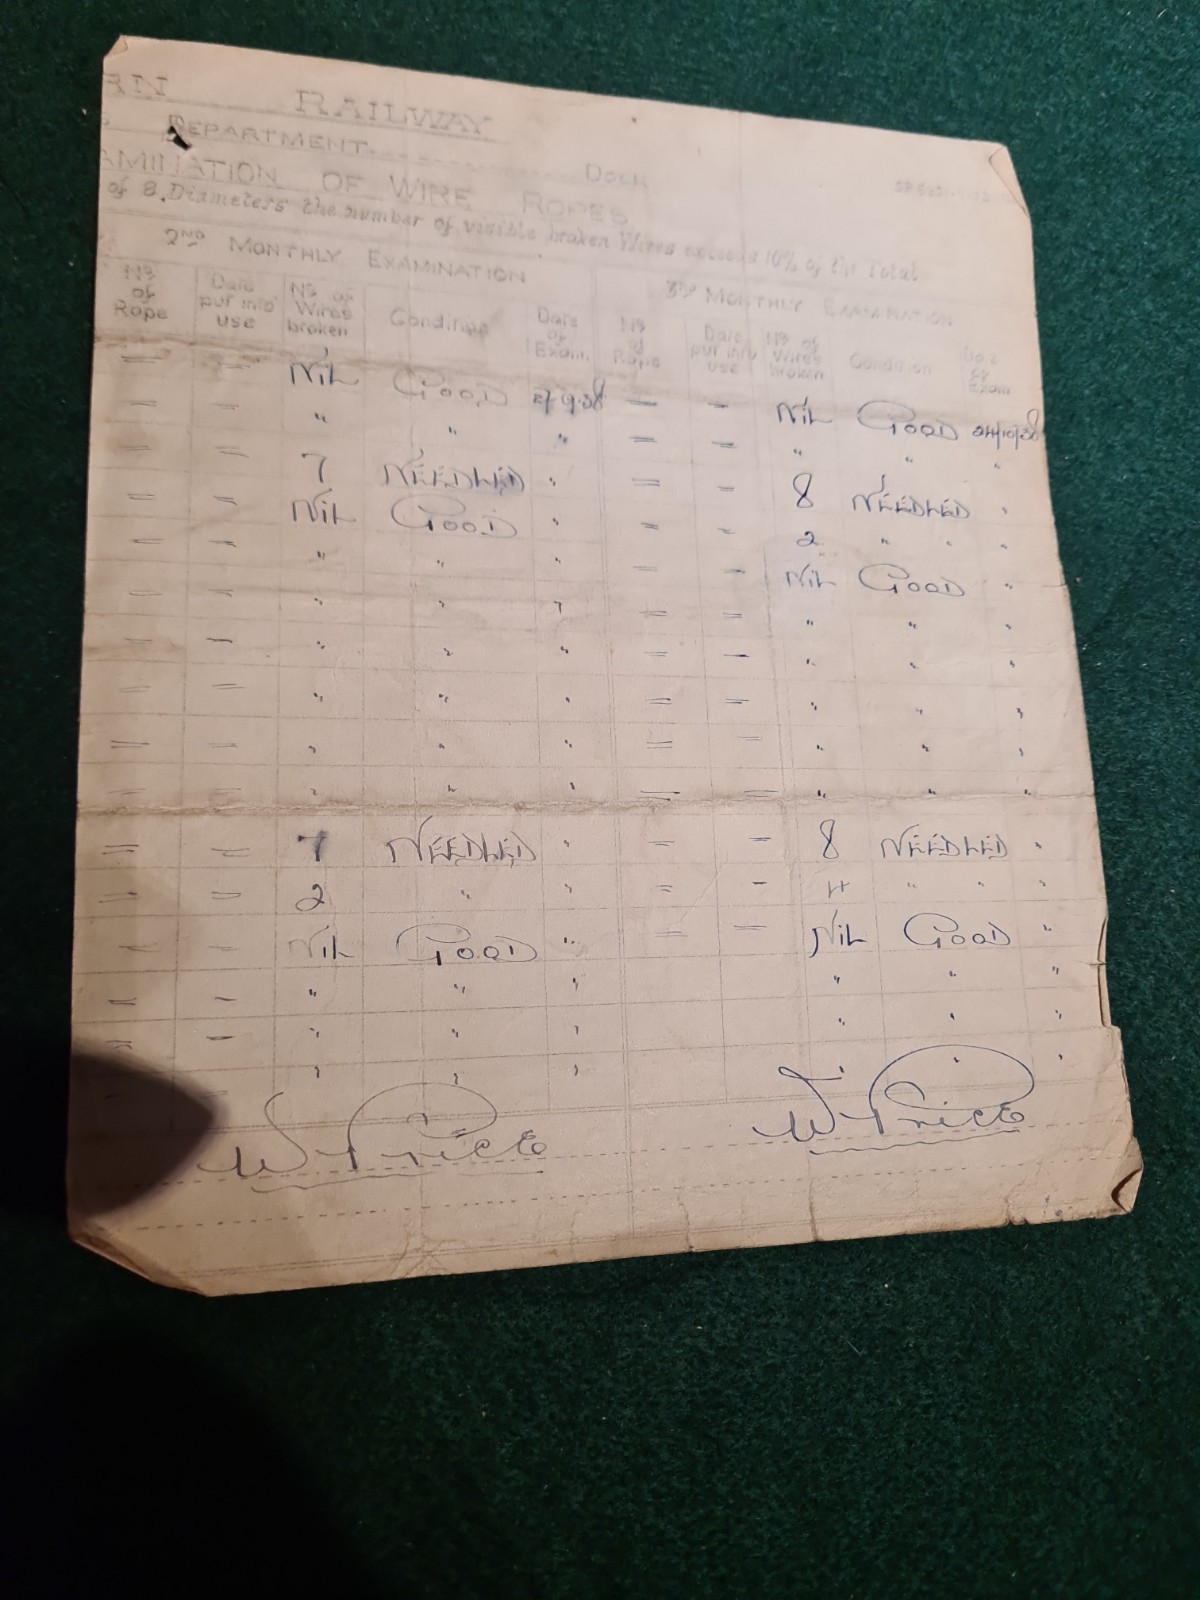 RN RAILWAY
DEPARTMENT DOCK
AMINATION OF WIRE ROPES
of 8 Diameters the number of visible broken Wires exceeds 10% of the Total
2ND MONTHLY EXAMINATION 3RD MONTHLY EXAMINATION
No of Rope Date put into use No of Wires broken Condition Date of Exam No of Rope Date put into use No of Wires broken Condition Date of Exam
= – NiL GOOD – – NiL GOOD 24/10/38
– – " " " = = " " "
– – 7 NEEDLED " = – 8 NEEDLED "
= – NiL GOOD " – – 2 " " "
– – " " " – – NiL GOOD "
– = " " " = = " " "
= – " " " = – " " "
– = " " " = = " " "
= = " " " = – " " "
– = " " " = = " " "
= = 7 NEEDLED " – – 8 NEEDLED "
= = 2 " " = – 4 " " "
= – NiL GOOD " – – NiL GOOD "
= – " " " " " "
= – " " " " " "
" " " " "
W Price W Price